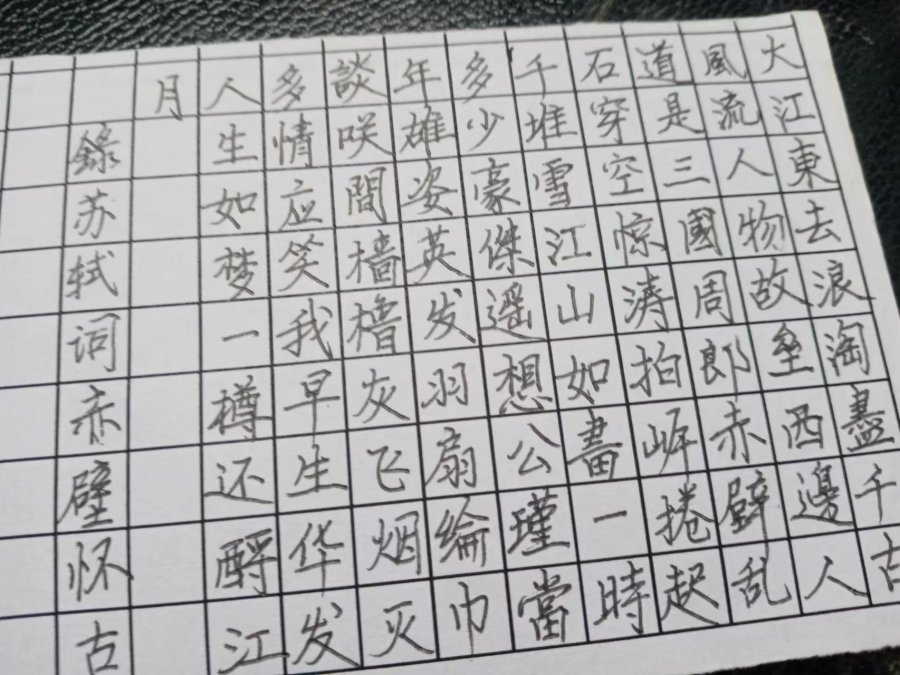 大江東去浪淘盡千古
風流人物故壘西邊人
道是三國周郎赤壁乱
石穿空惊濤拍岸捲起
千堆雪江山如畫一時
多少豪傑遥想公瑾當
年雄姿英发羽扇綸巾
談咲間樯橹灰飞烟灭
多情应笑我早生华发
人生如梦一樽还酹江
月
錄苏轼词赤壁怀古